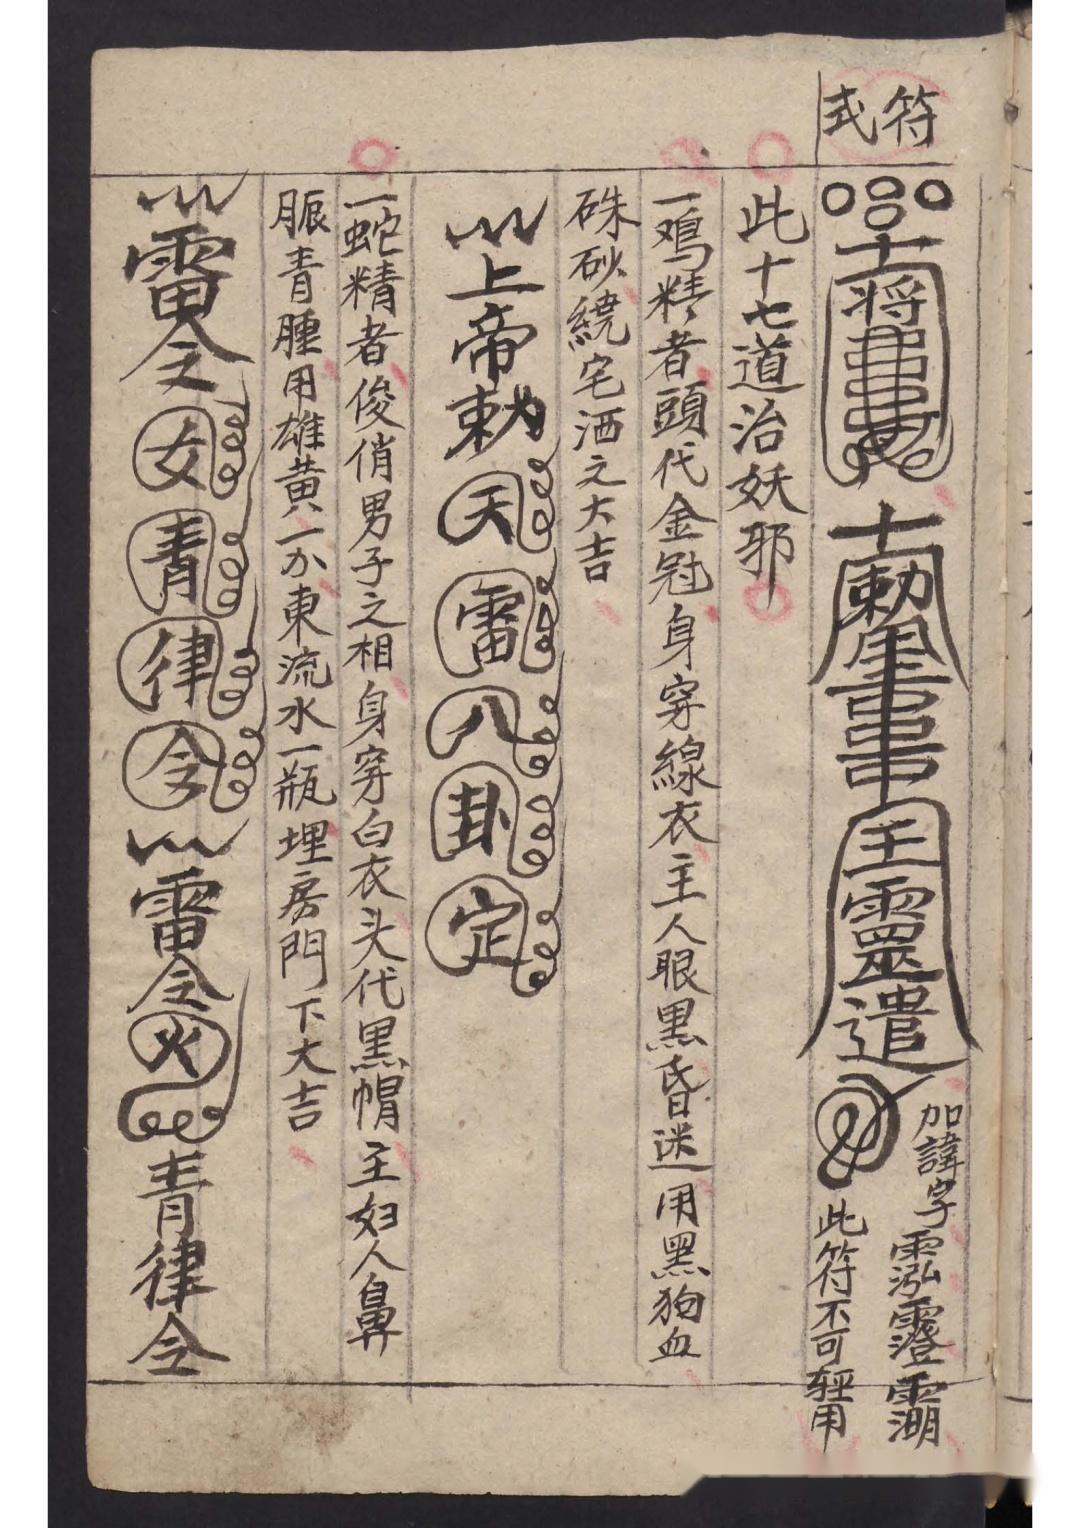 符式
十將
十勅
王靈遣
加諱字
此符不可輕用
此十七道治妖邪
一鳮精者頭代金冠身穿線衣主人眼黑昏迷用黑狗血
硃砂繞宅洒之大吉
上帝勅天雷八卦定
一蛇精者俊俏男子之相身穿白衣头代黑帽主妇人鼻
脤青腫用雄黃一か東流水一瓶埋房門下大吉
雷令女青律令雷令火青律令